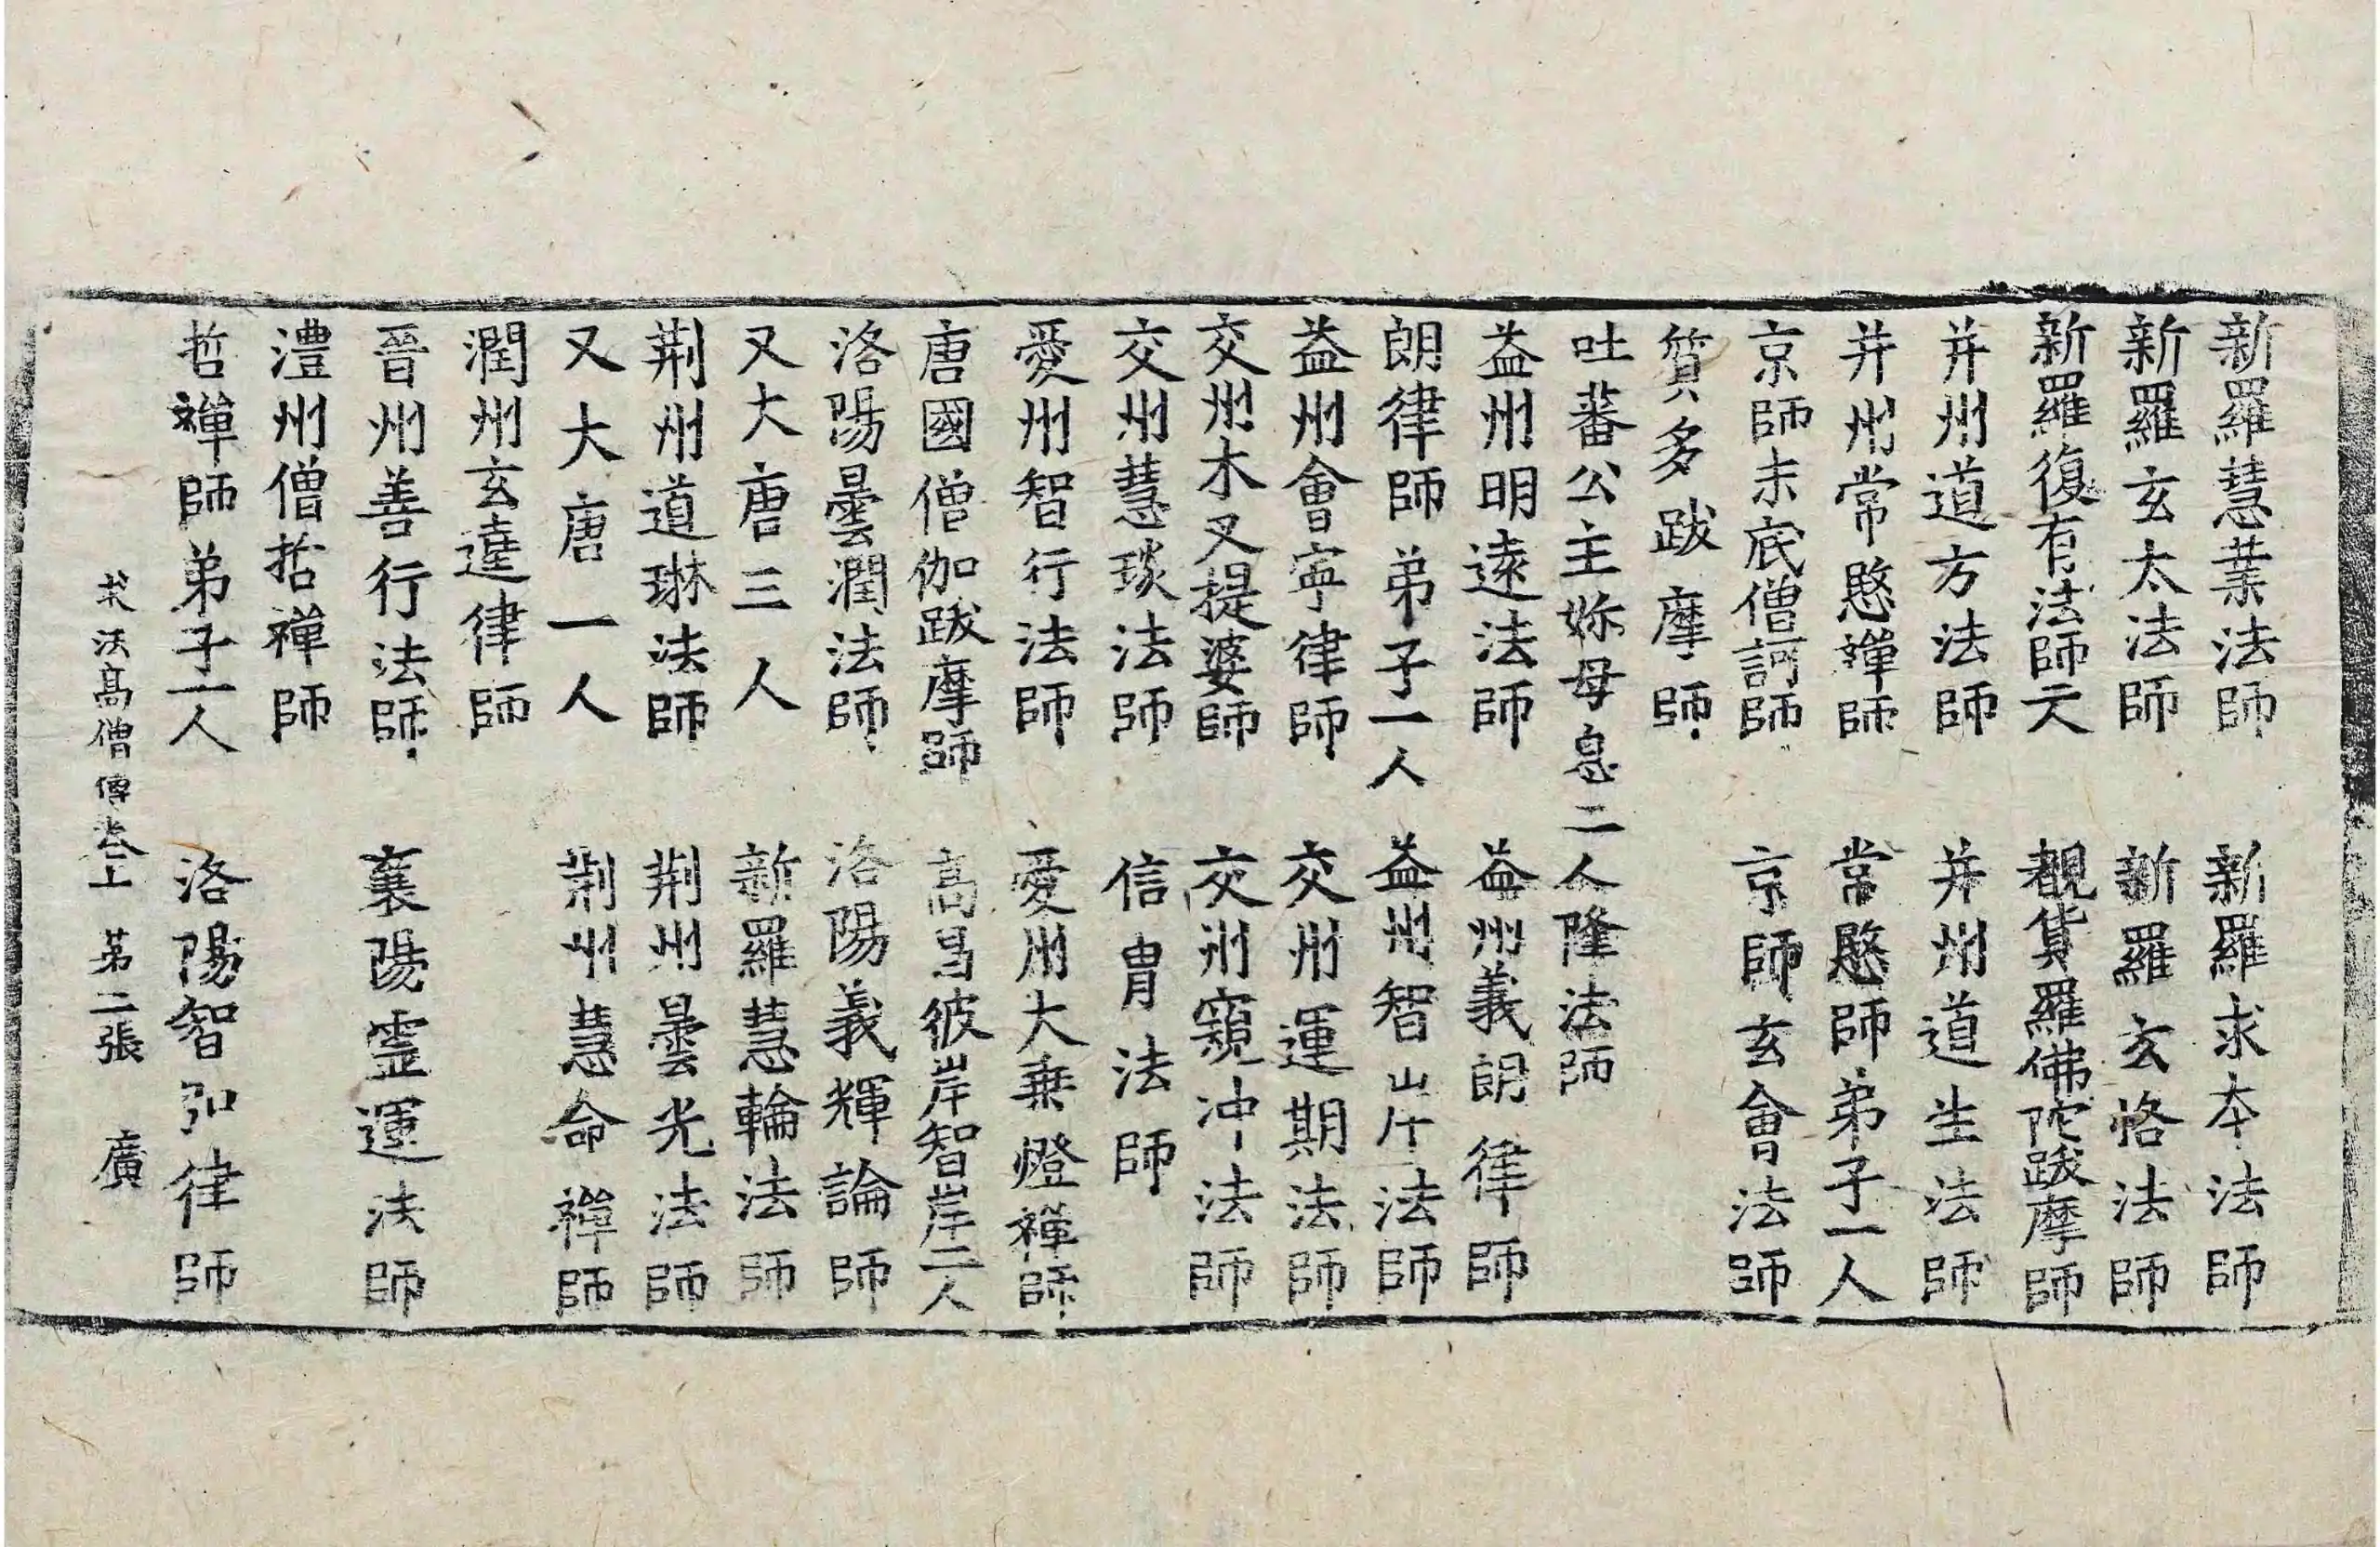 新羅慧業法師 新羅求本法師
新羅玄太法師 新羅玄恪法師
新羅復有法師二人 覩貨羅佛陀跋摩師
并州道方法師 并州道生法師
并州常慜禪師 常慜師弟子一人
京師末底僧訶師 京師玄會法師
質多跋摩師
吐蕃公主妳母息二人隆法師
益州明遠法師 益州義朗律師
朗律師弟子一人 益州智岸法師
益州會寧律師 交州運期法師
交州木叉提婆師 交州窺冲法師
交州慧琰法師 信胄法師
愛州智行法師 愛州大乗燈禪師
唐國僧伽跋摩師 髙昌彼岸智岸二人
洛陽曇潤法師 洛陽義輝論師
又大唐三人 新羅慧輪法師
荆州道琳法師 荆州曇光法師
又大唐一人 荆州慧命禪師
潤州玄逹律師
晉州善行法師 襄陽霊運法師
澧州僧哲禪師
哲禪師弟子一人 洛陽智弘律師
求法髙僧傳卷上 苐二張 廣